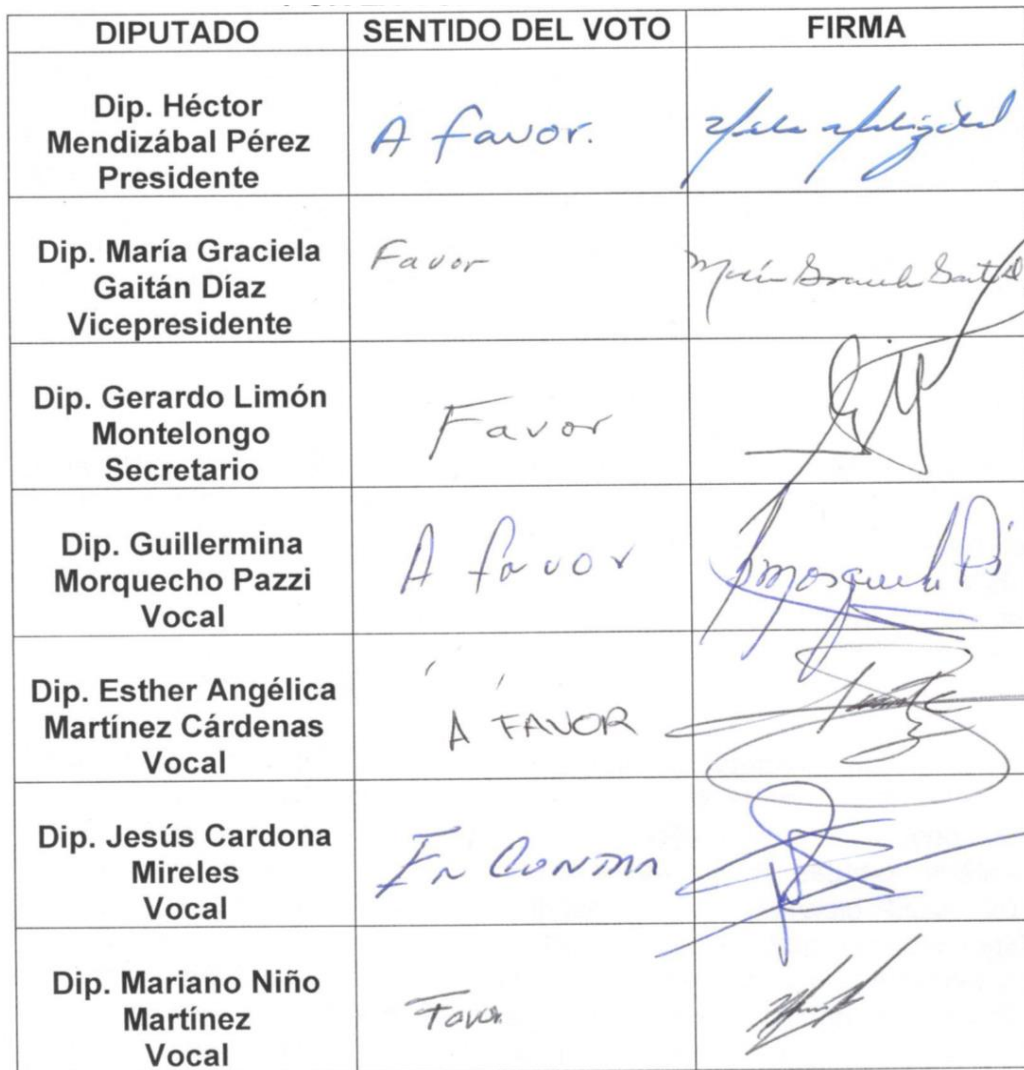 DIPUTADO SENTIDO DEL VOTO FIRMA
Dip. Héctor
Mendizábal Pérez
Presidente
A favor.
Dip. María Graciela
Gaitán Díaz
Vicepresidente
Favor
María Graciela Gaitán
Dip. Gerardo Limón
Montelongo
Secretario
Favor
Dip. Guillermina
Morquecho Pazzi
Vocal
A favor
Dip. Esther Angélica
Martínez Cárdenas
Vocal
A FAVOR
Dip. Jesús Cardona
Mireles
Vocal
En Contra
Dip. Mariano Niño
Martínez
Vocal
Favor